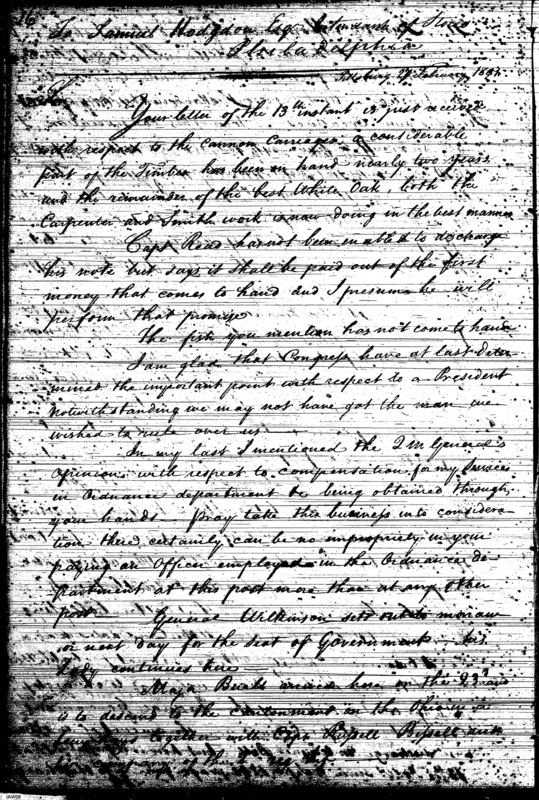 16
To Samuel Hodgdon Esq. Intendant of Stores
Philadelphia
Pittsburg 27 February 1801
Sir
Your letter of the 13th instant is just received
with respect to the cannon carriages a considerable
part of the Timber has been on hand nearly two years
and the remainder of the best White Oak, both the
Carpenter and Smith work is now doing in the best manner
Capt Read has not been enabled to discharge
his note but says it shall be paid out of the first
money that comes to hand and I presume he will
perform that promise
The fish you mention has not come to hand
I am glad that Congress have at last deter
mined the important point with respect to a President
notwithstanding we may not have got the man we
wished to rule over us
In my last I mentioned the Q M General's
opinion with respect to compensation for my services
in Ordnance department be being obtained through
your hands pray take this business into considera
tion there certainly can be no impropriety in your
paying an Officer employed in the Ordnance de
partment at this post more than at any other
post General Wilkinson sets out to morrow
or next day for the seat of Government his
Lady continues here
Major Buell arrived here on the 23d and
is to descend to the cantonment on the Ohio in a
few days together with Capt Russell Bissell and
of the reg